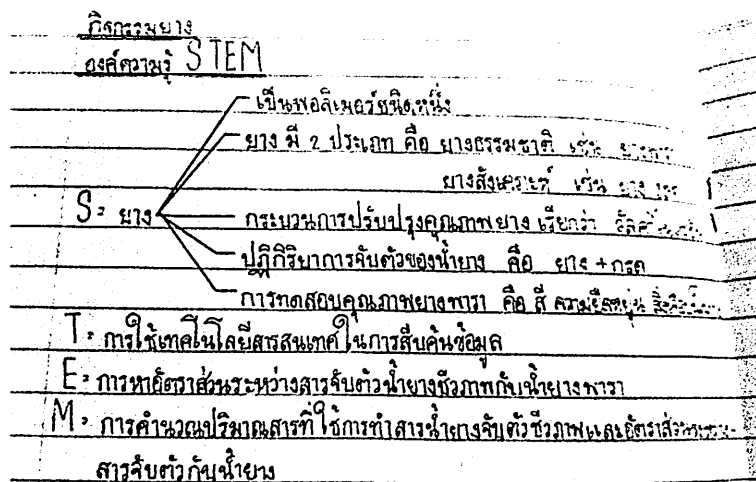 กิจกรรมยาง
องค์ความรู้ STEM
เป็นพอลิเมอร์ชนิดหนึ่ง
ยาง มี 2 ประเภท คือ ยางธรรมชาติ เช่น
ยางสังเคราะห์ เช่น ยาง
S = ยาง
กระบวนการปรับปรุงคุณภาพยาง เรียกว่า
ปฏิกิริยาการจับตัวของน้ำยาง คือ ยาง + กรด
การทดสอบคุณภาพยางพารา คือ สี ความยืดหยุ่น
T = การใช้เทคโนโลยีสารสนเทศในการสืบค้นข้อมูล
E = การหาอัตราส่วนระหว่างสารจับตัวน้ำยางชีวภาพกับน้ำยางพารา
M = การคำนวณปริมาณสารที่ใช้การทำสารน้ำยางจับตัวชีวภาพและอัตราส่วน
สารจับตัวกับน้ำยาง